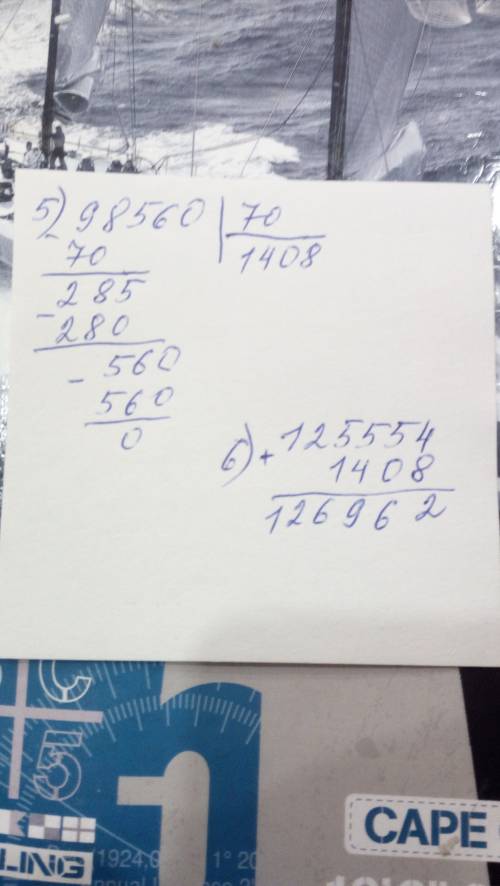 5) 98560 | 70
- 70 1408
285
- 280
- 560
560
0
6) + 125554
1408
126962
5
CAPE
LING
1924.
1° 20